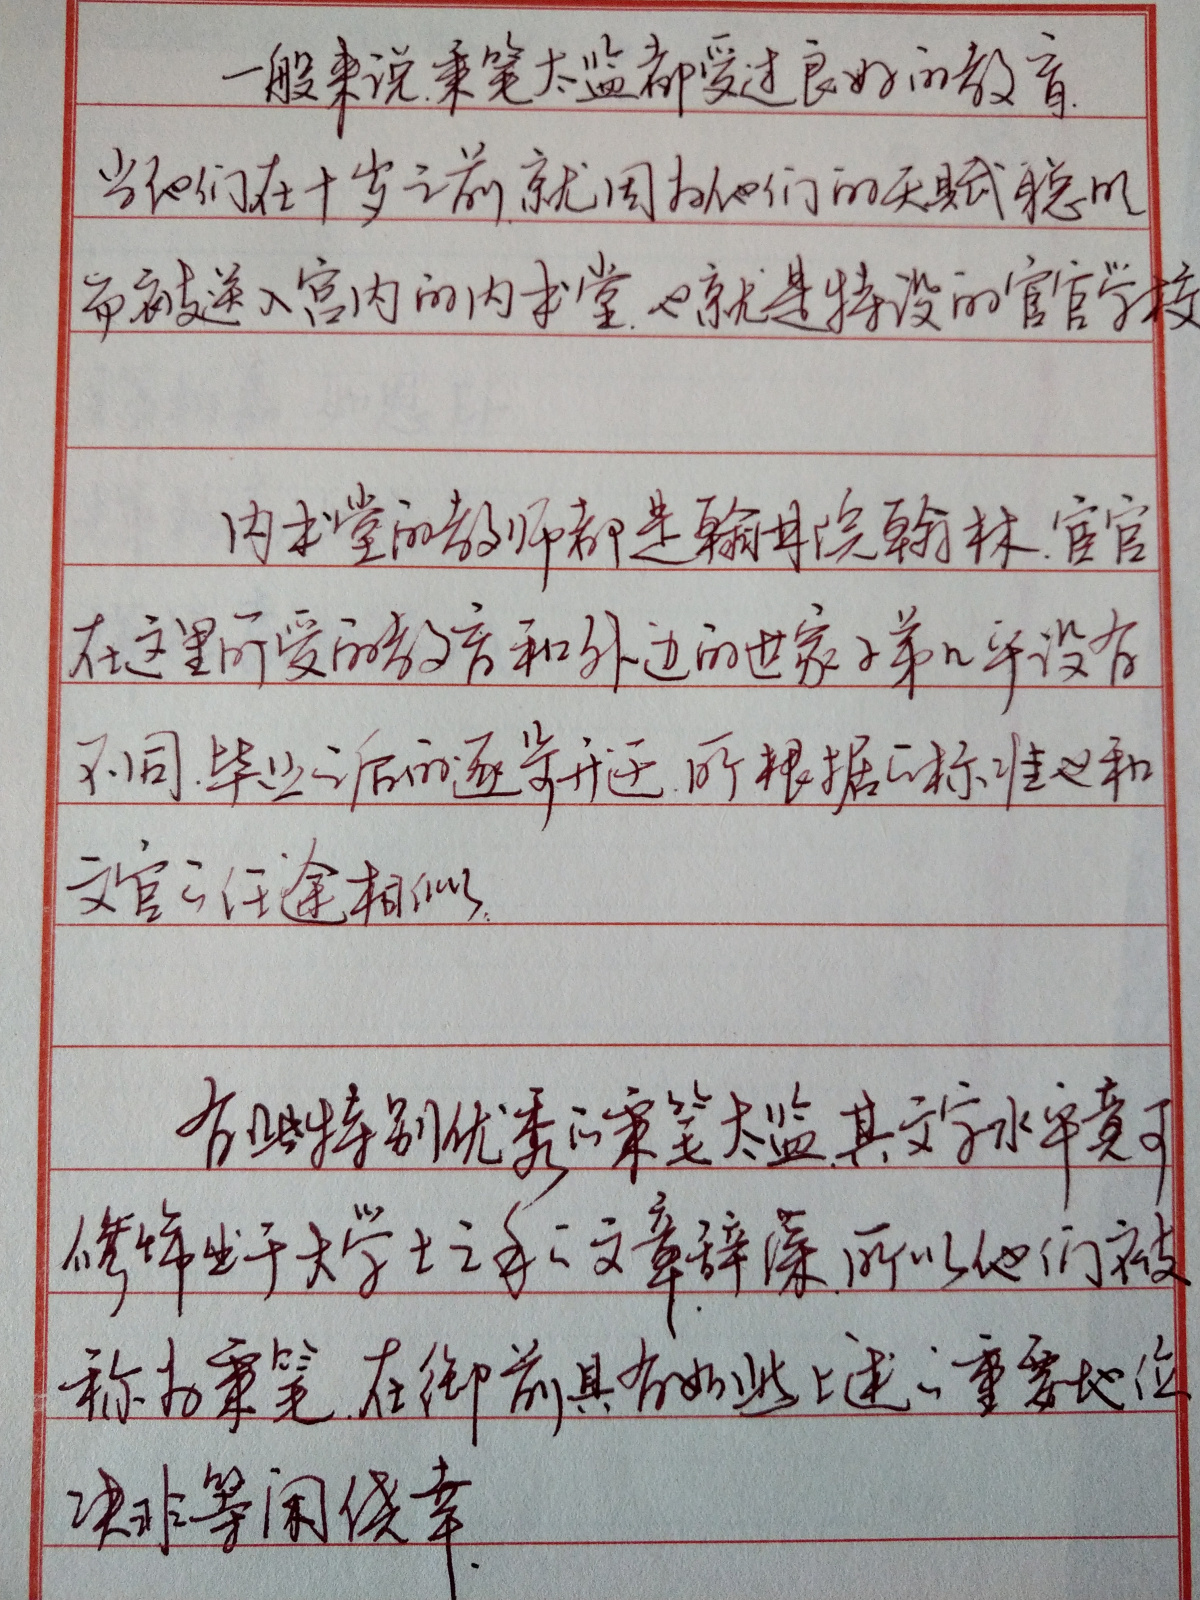 一般来说.秉笔太监都受过良好的教育.
当他们在十岁之前.就因为他们的天赋聪明
而被送入宫内的内书堂.也就是特设的宦官学校
内书堂的教师都是翰林院翰林.宦官
在这里所受的教育和外边的世家子弟几乎没有
不同.毕业之后的逐步升迁.所根据的标准也和
文官的仕途相似.
有些特别优秀的秉笔太监.其文字水平竟可
修饰出于大学士之手的文章辞藻.所以他们被
称为秉笔.在御前具有如此上述的重要地位
决非等闲侥幸.